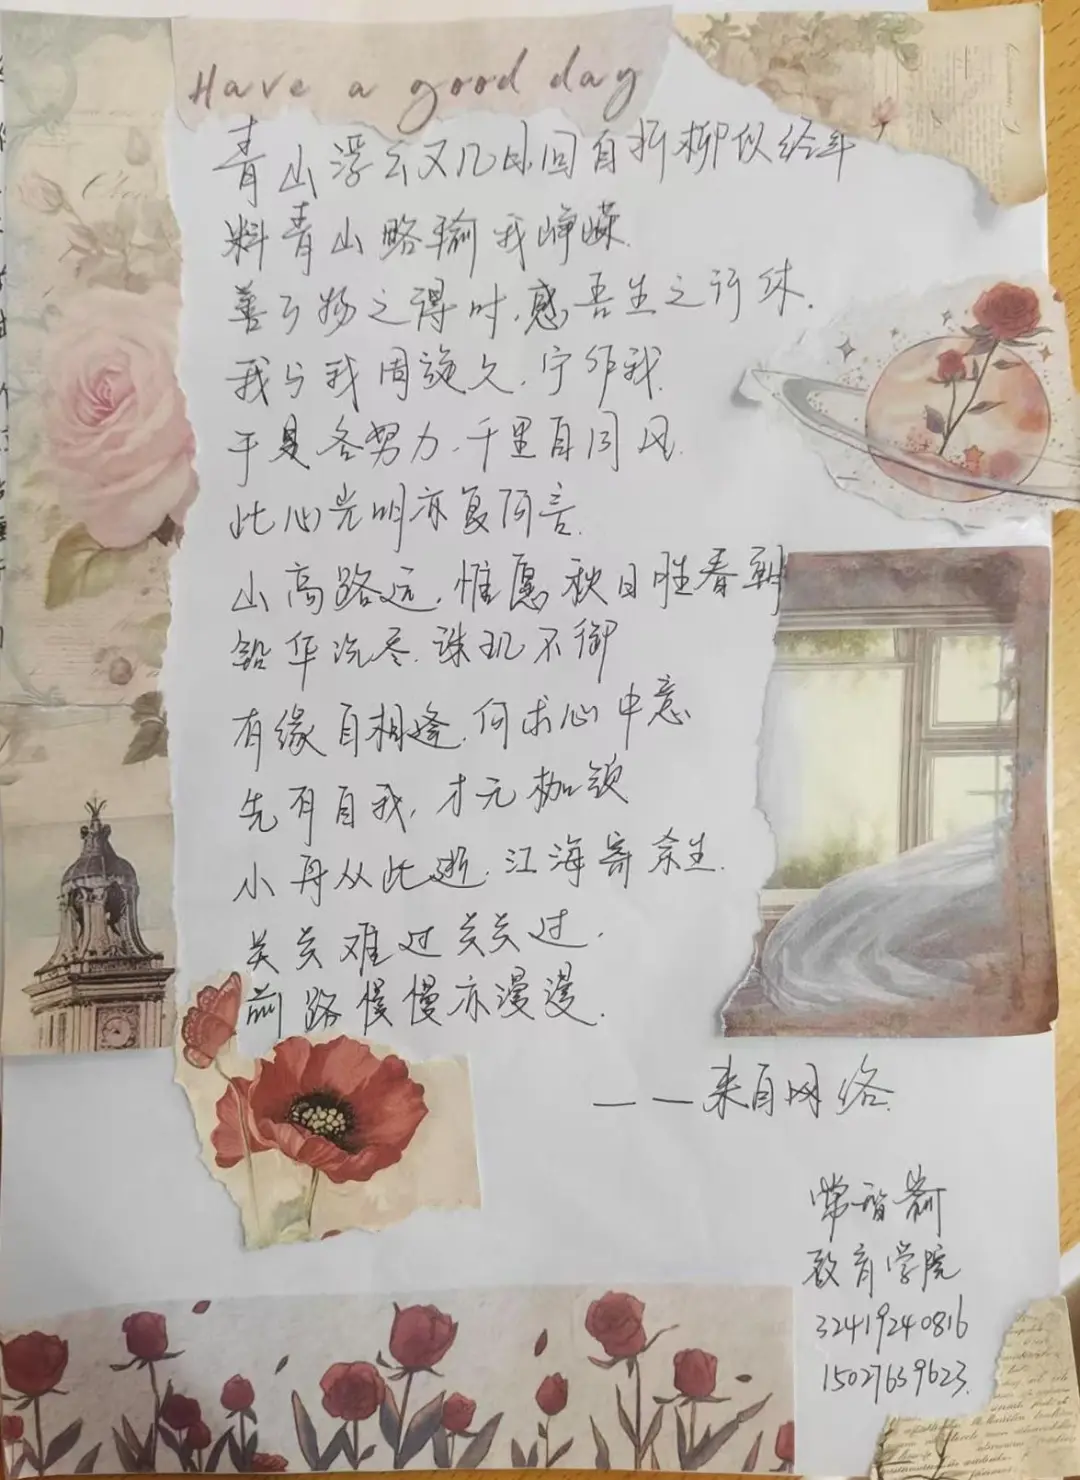 Have a good day
青山浮云又几时回自折柳似经年
料青山略输我峥嵘.
善万物之得时,感吾生之行休.
我与我周旋久,宁作我.
于是各努力,千里自同风.
此心光明亦复何言.
山高路远,惟愿秋日胜春朝
铅华洗尽.珠玑不御
有缘自相逢,何求心中意
先有自我,才无枷锁
小舟从此逝,江海寄余生.
关关难过关关过.
前路慢慢亦漫漫.
——来自网络.
教育学院
32419240816
15027639623.